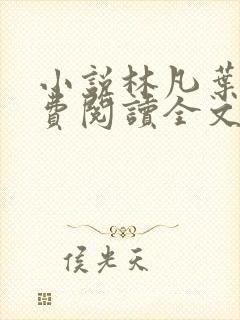 小說林凡葉
費閱讀全文
侯光天